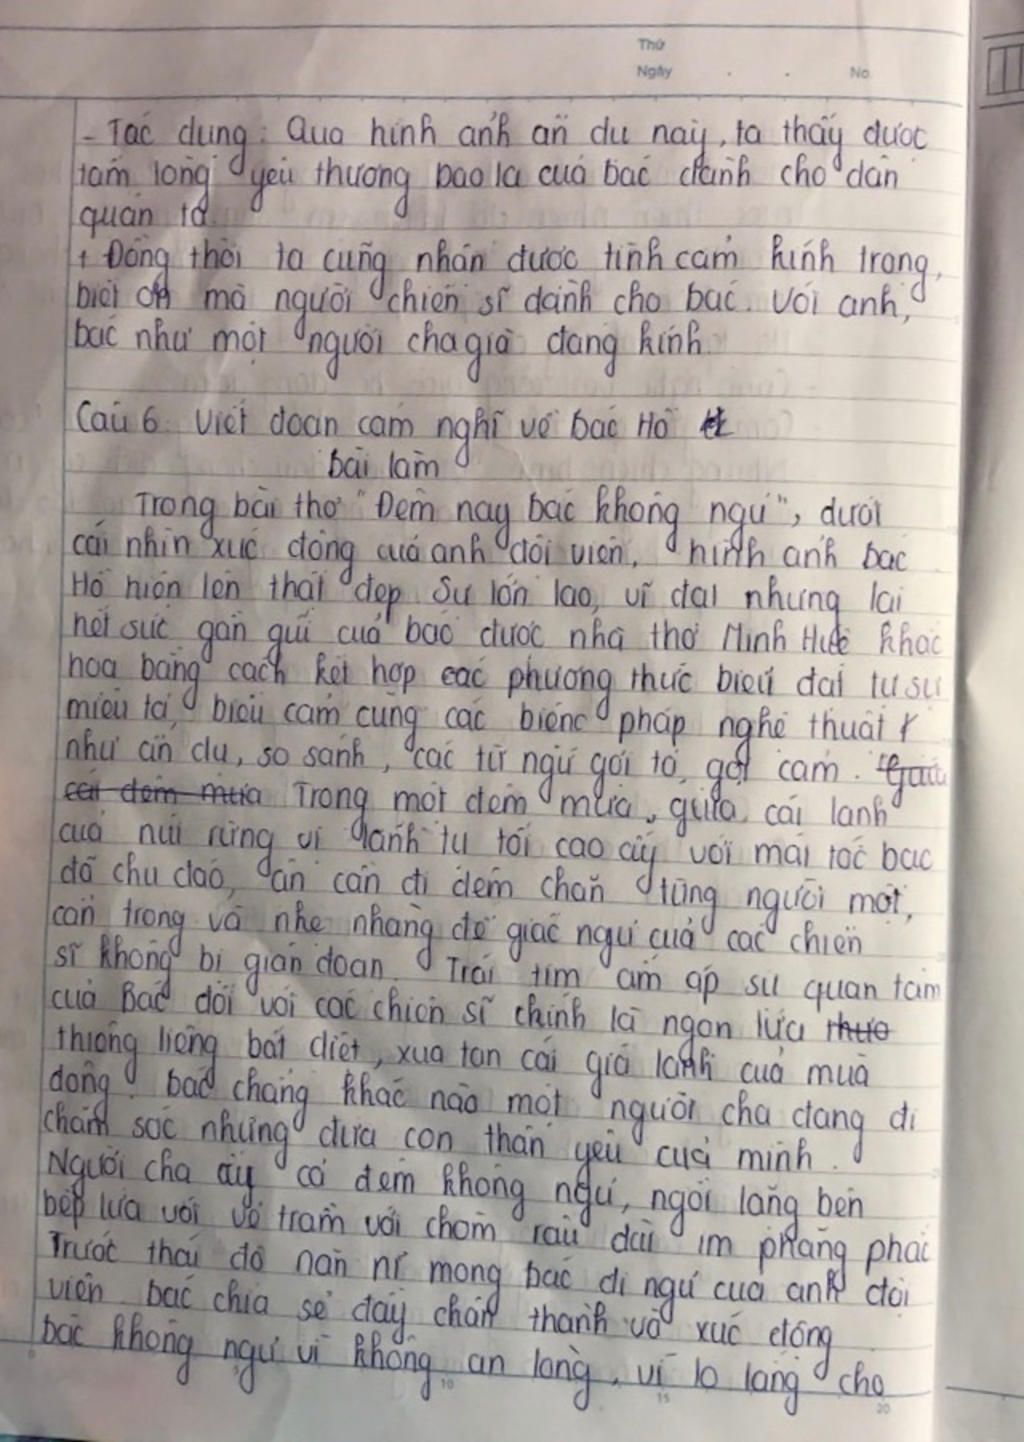 Thứ
Ngày . . No.
- Tác dụng: Qua hình ảnh ẩn dụ này, ta thấy được
tấm lòng yêu thương bao la của bác dành cho dân
quân ta.
+ Đồng thời ta cũng nhận được tình cảm kính trọng,
biết ơn mà người chiến sĩ dành cho bác. Với anh,
bác như một người cha già đáng kính.
Câu 6: Viết đoạn cảm nghĩ về bác Hồ
bài làm
Trong bài thơ "Đêm nay bác không ngủ", dưới
cái nhìn xúc động của anh đội viên, hình ảnh bác
Hồ hiện lên thật đẹp. Sự lớn lao, vĩ đại nhưng lại
hết sức gần gũi của bác được nhà thơ Minh Huệ khắc
hoạ bằng cách kết hợp các phương thức biểu đạt tự sự
miêu tả, biểu cảm cùng các biênc pháp nghệ thuật
như ẩn dụ, so sánh, các từ ngữ gợi tả, gợi cảm. "Giữa
cái đêm mưa Trong một đêm mưa, giữa cái lạnh
của núi rừng vị lãnh tụ tối cao ấy với mái tóc bạc
đã chu đáo, ân cần đi dém chăn từng người một,
cẩn trọng và nhẹ nhàng để giấc ngủ của các chiến
sĩ không bị gián đoạn. Trái tim ấm áp sự quan tâm
của Bác đối với các chiến sĩ chính là ngọn lửa thưo
thiêng liêng bất diệt, xua tan cái giá lạnh của mùa
đông. bác chẳng khác nào một người cha đang đi
chăm sóc những đứa con thân yêu của mình.
Người cha ấy cả đêm không ngủ, ngồi lặng bên
bếp lửa với vẻ trầm với chòm râu dài im phăng phắc
Trước thái độ nằn nì mong bác đi ngủ của anh đội
viên. bác chia sẻ đầy chân thành và xúc động
bác không ngủ vì không an lòng, vì lo lắng cho
10 15 20